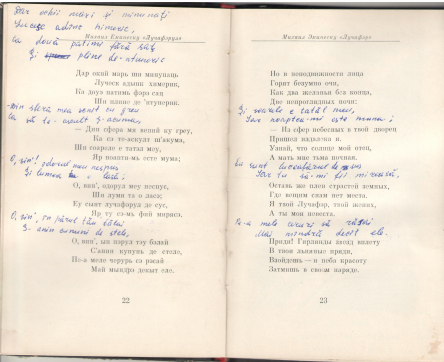 Dar ochii mari și minunați
Lucesc adânc himeric,
Ca două patimi fără saț
Și pline de-ntuneric
Михаил Еминеску «Лучафэрул»
Дар окий марь ши минунаць
Луческ адынк химерик,
Ка доуэ патимь фэрэ сац
Ши плине де 'нтунерик.
Din sfera mea venii cu greu
Ca să te-ascult ș-acuma
— Дин сфера мя вений ку греу,
Ка сэ те-аскулт ш'акума,
Ши соареле е татэл меу,
Яр ноаптя-мь есте мума;
O, vin'! odorul meu nespus
Și lumea ta o lasă;
О, вин', одорул меу неспус,
Ши лумя та о ласэ;
Еу сынт лучафэрул де сус,
Яр ту сэ-мь фий мирясэ.
O, vin', în părul tău bălai
S-anin cununi de stele,
О, вин', ын пэрул тэу бэлай
С'анин кунунь де стеле,
Пе-а меле черурь сэ рэсай
Май мындрэ декыт еле.
22
Михаил Эминеску «Лучафэр»
Но в неподвижности лица
Горит безумно око,
Как две желаньи без конца,
Две непроглядных ночи:
Și soarele e tatăl meu,
Iar noaptea-mi este muma;
— Из сфер небесных в твой дворец
Пришел издалека я.
Узнай, что солнце мой отец,
А мать мне тьма ночная.
Eu sunt luceafărul de sus
Iar tu să-mi fii mireasă.
Оставь же плен страстей земных,
Где вещим снам нет места.
Я твой Лучафэр, твой жених,
А ты моя невеста.
Pe-a mele ceruri să răsai
Mai mândră decât ele.
Приди! Гирланды звезд вплету
В твои льняные пряди,
Взойдешь — и неба красоту
Затмишь в своем наряде.
23